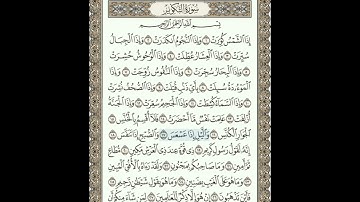 سُورَةُ التَّكْوِيرِ
بِسْمِ اللَّهِ الرَّحْمَٰنِ الرَّحِيمِ
إِذَا الشَّمْسُ كُوِّرَتْ ١ وَإِذَا النُّجُومُ انكَدَرَتْ ٢ وَإِذَا الْجِبَالُ
سُيِّرَتْ ٣ وَإِذَا الْعِشَارُ عُطِّلَتْ ٤ وَإِذَا الْوُحُوشُ حُشِرَتْ
٥ وَإِذَا الْبِحَارُ سُجِّرَتْ ٦ وَإِذَا النُّفُوسُ زُوِّجَتْ ٧ وَإِذَا
الْمَوْءُۥدَةُ سُئِلَتْ ٨ بِأَيِّ ذَنبٍ قُتِلَتْ ٩ وَإِذَا الصُّحُفُ نُشِرَتْ
١٠ وَإِذَا السَّمَاءُ كُشِطَتْ ١١ وَإِذَا الْجَحِيمُ سُعِّرَتْ ١٢ وَإِذَا الْجَنَّةُ
أُزْلِفَتْ ١٣ عَلِمَتْ نَفْسٌ مَّا أَحْضَرَتْ ١٤ فَلَا أُقْسِمُ بِالْخُنَّسِ
١٥ الْجَوَارِ الْكُنَّسِ ١٦ وَاللَّيْلِ إِذَا عَسْعَسَ ١٧ وَالصُّبْحِ إِذَا تَنَفَّسَ ١٨
إِنَّهُ لَقَوْلُ رَسُولٍ كَرِيمٍ ١٩ ذِي قُوَّةٍ عِندَ ذِي الْعَرْشِ مَكِينٍ ٢٠ مُّطَاعٍ
ثَمَّ أَمِينٍ ٢١ وَمَا صَاحِبُكُم بِمَجْنُونٍ ٢٢ وَلَقَدْ رَآهُ بِالْأُفُقِ الْمُبِينِ
٢٣ وَمَا هُوَ عَلَى الْغَيْبِ بِضَنِينٍ ٢٤ وَمَا هُوَ بِقَوْلِ شَيْطَانٍ رَّجِيمٍ ٢٥
فَأَيْنَ تَذْهَبُونَ ٢٦ إِنْ هُوَ إِلَّا ذِكْرٌ لِّلْعَالَمِينَ ٢٧